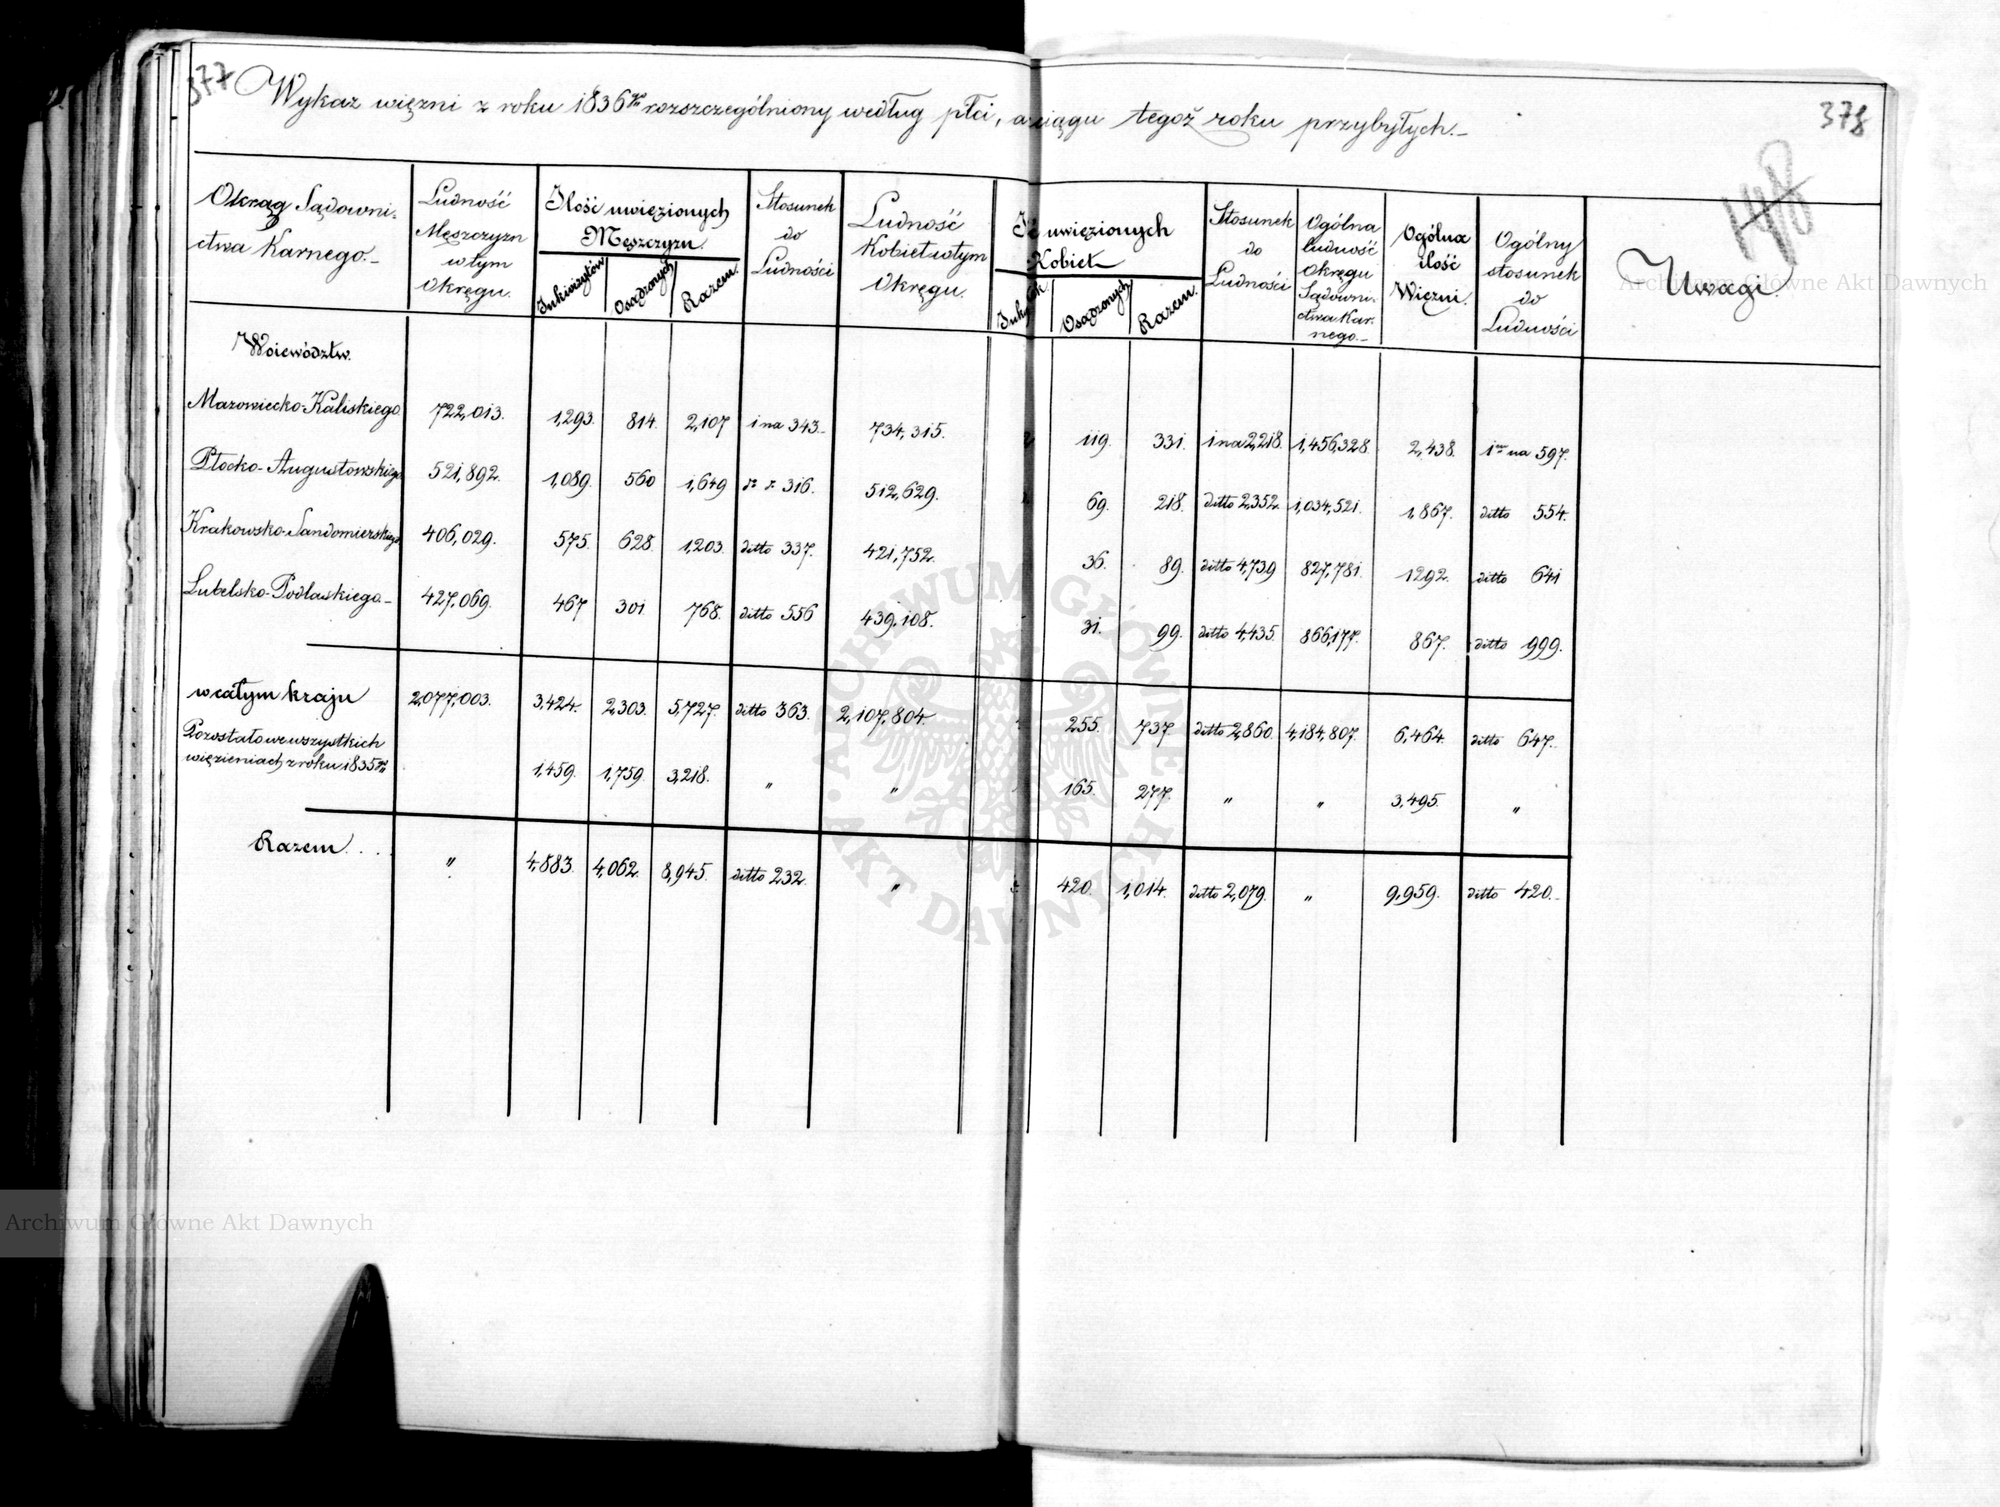 377
378
Wykaz więzni z roku 1836go rozszczególniony według płci, w ciągu tegoż roku przybyłych.
Okrąg Sądowni-
ctwa Karnego.
Ludność
Męszczyzn
w tym
Okręgu.
Ilość uwięzionych
Męszczyzn.
Inkwizytów
Osądzonych
Razem.
Stosunek
do
Ludności
Ludność
Kobiet w tym
Okręgu.
uwięzionych
Kobiet
Osądzonych
Razem.
Stosunek
do
Ludności
Ogólna
ludność
Okręgu
Sądowni-
ctwa Kar-
nego.
Ogólna
ilość
Więzni.
Ogólny
stosunek
do
Ludności
Uwagi.
Województw.
Mazowiecko-Kaliskiego 722,013. 1,293. 814. 2,107 1 na 343. 734,315. 119. 331. 1 na 2,218. 1,456,328 2,438. 1en na 597.
Płocko-Augustowskiego 521,892. 1,089. 560 1,649 316. 512,629. 69. 218. ditto 2,352. 1,034,521. 1,867. ditto 554.
Krakowsko-Sandomierskiego 406,029. 575. 628. 1,203. ditto 337. 421,752. 36. 89. ditto 4,739 827,781. 1292. ditto 641
Lubelsko-Podlaskiego 427,069. 467 301 768. ditto 556 439,108. 31. 99. ditto 4,435 866,177. 867. ditto 999.
w całym kraju 2,077,003. 3,424. 2,303. 5,727. ditto 363. 2,107,804. 255. 737. ditto 2,860. 4,184,807. 6,464. ditto 647.
Pozostało we wszystkich
więzieniach z roku 1835go 1,459. 1,759. 3,218. " " 165. 277. " " 3,495. "
Razem . . . " 4,883. 4,062. 8,945. ditto 232. " 420. 1,014. ditto 2,079. " 9,959. ditto 420.
ARCHIWUM GŁÓWNE AKT DAWNYCH
Archiwum Główne Akt Dawnych
Archiwum Główne Akt Dawnych